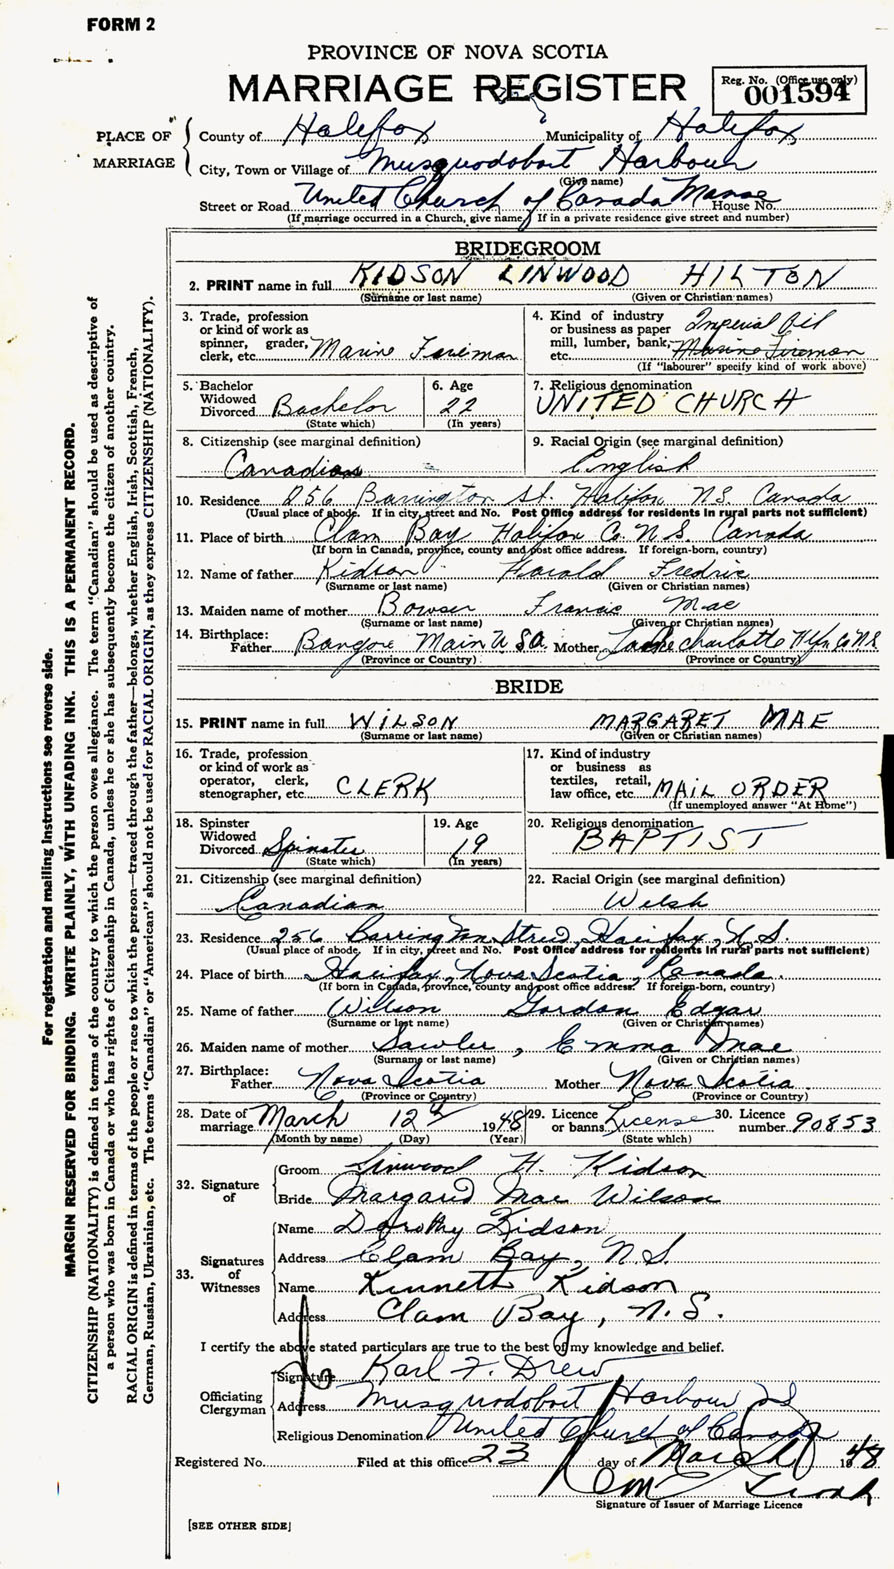 FORM 2
PROVINCE OF NOVA SCOTIA
MARRIAGE REGISTER
Reg. No. (Office use only)
001594
PLACE OF MARRIAGE
County of Halifax Municipality of Halifax
City, Town or Village of Musquodoboit Harbour
(Give name)
Street or Road United Church of Canada Manse House No.
(If marriage occurred in a Church, give name) If in a private residence give street and number)
BRIDEGROOM
2. PRINT name in full KIDSON LINWOOD HILTON
(Surname or last name) (Given or Christian names)
3. Trade, profession or kind of work as spinner, grader, clerk, etc. Marine Fireman
4. Kind of industry or business as paper mill, lumber, bank, etc. Imperial Oil Marine Fireman
(If "labourer" specify kind of work above)
5. Bachelor Widowed Divorced Bachelor
(State which)
6. Age 22
(In years)
7. Religious denomination
UNITED CHURCH
8. Citizenship (see marginal definition)
Canadian
9. Racial Origin (see marginal definition)
English
10. Residence 256 Barrington St. Halifax N.S. Canada
(Usual place of abode. If in city, street and No. Post Office address for residents in rural parts not sufficient)
11. Place of birth Clam Bay Halifax Co. N.S. Canada
(If born in Canada, province, county and post office address. If foreign-born, country)
12. Name of father Kidson Harold Fredric
(Surname or last name) (Given or Christian names)
13. Maiden name of mother Bowser Francis Mae
(Surname or last name) (Given or Christian names)
14. Birthplace: Father Bangore Main U S A. Mother Charlotte Hfx Co N S
(Province or Country) (Province or Country)
BRIDE
15. PRINT name in full WILSON MARGARET MAE
(Surname or last name) (Given or Christian names)
16. Trade, profession or kind of work as operator, clerk, stenographer, etc. CLERK
17. Kind of industry or business as textiles, retail, law office, etc. MAIL ORDER
(If unemployed answer "At Home")
18. Spinster Widowed Divorced Spinster
(State which)
19. Age 19
(In years)
20. Religious denomination
BAPTIST
21. Citizenship (see marginal definition)
Canadian
22. Racial Origin (see marginal definition)
Welsh
23. Residence 256 Barrington Street, Halifax, N.S.
(Usual place of abode. If in city, street and No. Post Office address for residents in rural parts not sufficient)
24. Place of birth Halifax, Nova Scotia, Canada.
(If born in Canada, province, county and post office address. If foreign-born, country)
25. Name of father Wilson Gordon Edgar
(Surname or last name) (Given or Christian names)
26. Maiden name of mother Sawler, Emma Mae
(Surname or last name) (Given or Christian names)
27. Birthplace: Father Nova Scotia Mother Nova Scotia.
(Province or Country) (Province or Country)
28. Date of marriage March 12th 1948
(Month by name) (Day) (Year)
29. Licence or banns License
(State which)
30. Licence number 90853
32. Signature of
Groom Linwood H. Kidson
Bride Margaret Mae Wilson
33. Signatures of Witnesses
Name Dorothy Kidson
Address Clam Bay, N.S.
Name Kenneth Kidson
Address Clam Bay, N.S.
I certify the above stated particulars are true to the best of my knowledge and belief.
Officiating Clergyman
Signature Karl F. Drew
Address Musquodoboit Harbour NS
Religious Denomination United Church of Canada
Registered No. Filed at this office 23 day of March 1948
Signature of Issuer of Marriage Licence
[SEE OTHER SIDE]
For registration and mailing instructions see reverse side.
MARGIN RESERVED FOR BINDING. WRITE PLAINLY, WITH UNFADING INK. THIS IS A PERMANENT RECORD.
CITIZENSHIP (NATIONALITY) is defined in terms of the country to which the person owes allegiance. The term "Canadian" should be used as descriptive of
a person who was born in Canada or who has rights of Citizenship in Canada, unless he or she has subsequently become the citizen of another country.
RACIAL ORIGIN is defined in terms of the people or race to which the person—traced through the father—belongs, whether English, Irish, Scottish, French,
German, Russian, Ukrainian, etc. The terms "Canadian" or "American" should not be used for RACIAL ORIGIN, as they express CITIZENSHIP (NATIONALITY).